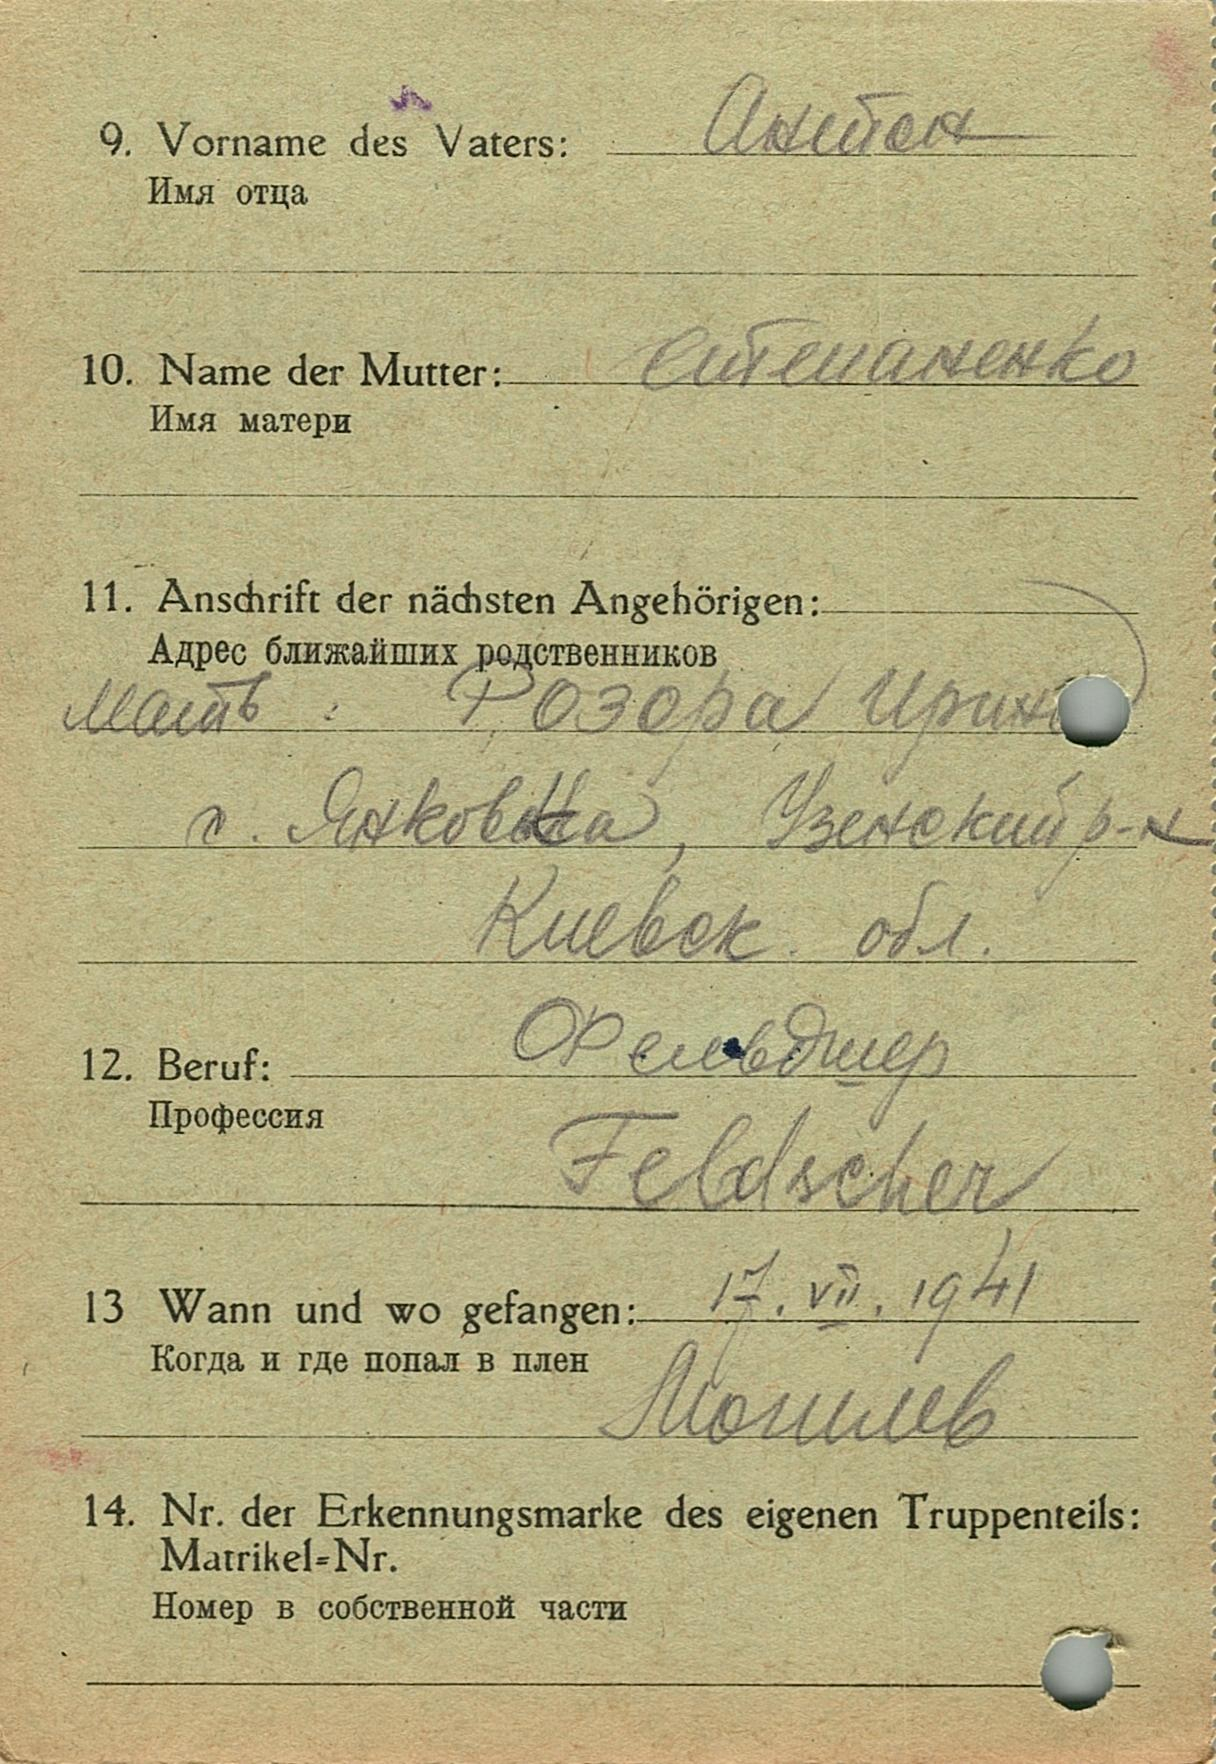 9. Vorname des Vaters: Антон
Имя отца
10. Name der Mutter: Степаненко
Имя матери
11. Anschrift der nächsten Angehörigen:
Адрес ближайших родственников
Мать : Розора Ирина
с. Янковка, Узенский р-н
Киевск. обл.
12. Beruf: Фельдшер
Профессия
Feldscher
13 Wann und wo gefangen: 17. VII. 1941
Когда и где попал в плен
Могилев
14. Nr. der Erkennungsmarke des eigenen Truppenteils:
Matrikel=Nr.
Номер в собственной части